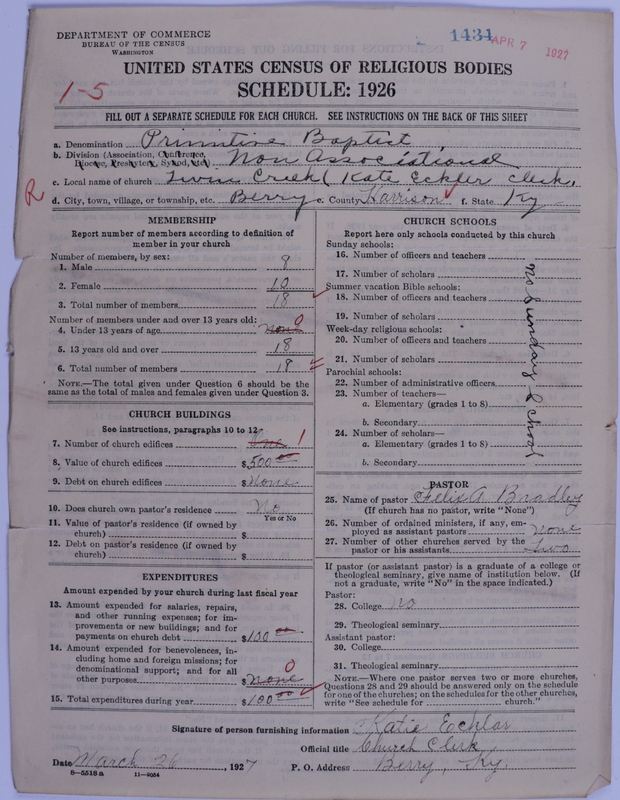 DEPARTMENT OF COMMERCE
BUREAU OF THE CENSUS
WASHINGTON
1434 APR 7 1927
UNITED STATES CENSUS OF RELIGIOUS BODIES
1-5
SCHEDULE: 1926
FILL OUT A SEPARATE SCHEDULE FOR EACH CHURCH. SEE INSTRUCTIONS ON THE BACK OF THIS SHEET
a. Denomination Primitive Baptist
b. Division (Association, Conference, Diocese, Presbytery, Synod, etc.) Non Associational
c. Local name of church Twin Creek (Kate Eckler clerk,
R
d. City, town, village, or township, etc. Berry e. County Harrison f. State Ky
MEMBERSHIP
Report number of members according to definition of
member in your church
Number of members, by sex:
1. Male 8
2. Female 10
3. Total number of members 18
Number of members under and over 13 years old:
4. Under 13 years of age None 0
5. 13 years old and over 18
6. Total number of members 18
NOTE.—The total given under Question 6 should be the
same as the total of males and females given under Question 3.
CHURCH BUILDINGS
See instructions, paragraphs 10 to 12
7. Number of church edifices One 1
8. Value of church edifices $500 00
9. Debt on church edifices $None
10. Does church own pastor's residence No
Yes or No
11. Value of pastor's residence (if owned by
church) $
12. Debt on pastor's residence (if owned by
church) $
EXPENDITURES
Amount expended by your church during last fiscal year
13. Amount expended for salaries, repairs,
and other running expenses; for im-
provements or new buildings; and for
payments on church debt $100 00
14. Amount expended for benevolences, in-
cluding home and foreign missions; for
denominational support; and for all
other purposes $None 0
15. Total expenditures during year $100 00
CHURCH SCHOOLS
Report here only schools conducted by this church
Sunday schools:
16. Number of officers and teachers
17. Number of scholars
Summer vacation Bible schools:
18. Number of officers and teachers
19. Number of scholars
Week-day religious schools:
20. Number of officers and teachers
21. Number of scholars
Parochial schools:
22. Number of administrative officers
23. Number of teachers—
a. Elementary (grades 1 to 8)
b. Secondary
24. Number of scholars—
a. Elementary (grades 1 to 8)
b. Secondary
No Sunday School
PASTOR
25. Name of pastor Felix A Bradley
(If church has no pastor, write "None")
26. Number of ordained ministers, if any, em-
ployed as assistant pastors None
27. Number of other churches served by the
pastor or his assistants two
If pastor (or assistant pastor) is a graduate of a college or
theological seminary, give name of institution below. (If
not a graduate, write "No" in the space indicated.)
Pastor:
28. College No
29. Theological seminary
Assistant pastor:
30. College
31. Theological seminary
NOTE.—Where one pastor serves two or more churches,
Questions 28 and 29 should be answered only on the schedule
for one of the churches; on the schedules for the other churches,
write "See schedule for church."
Signature of person furnishing information Katie Eckler
Official title Church Clerk
Date March 26, 1927 P. O. Address Berry, Ky.
8-5518 a 11-9054